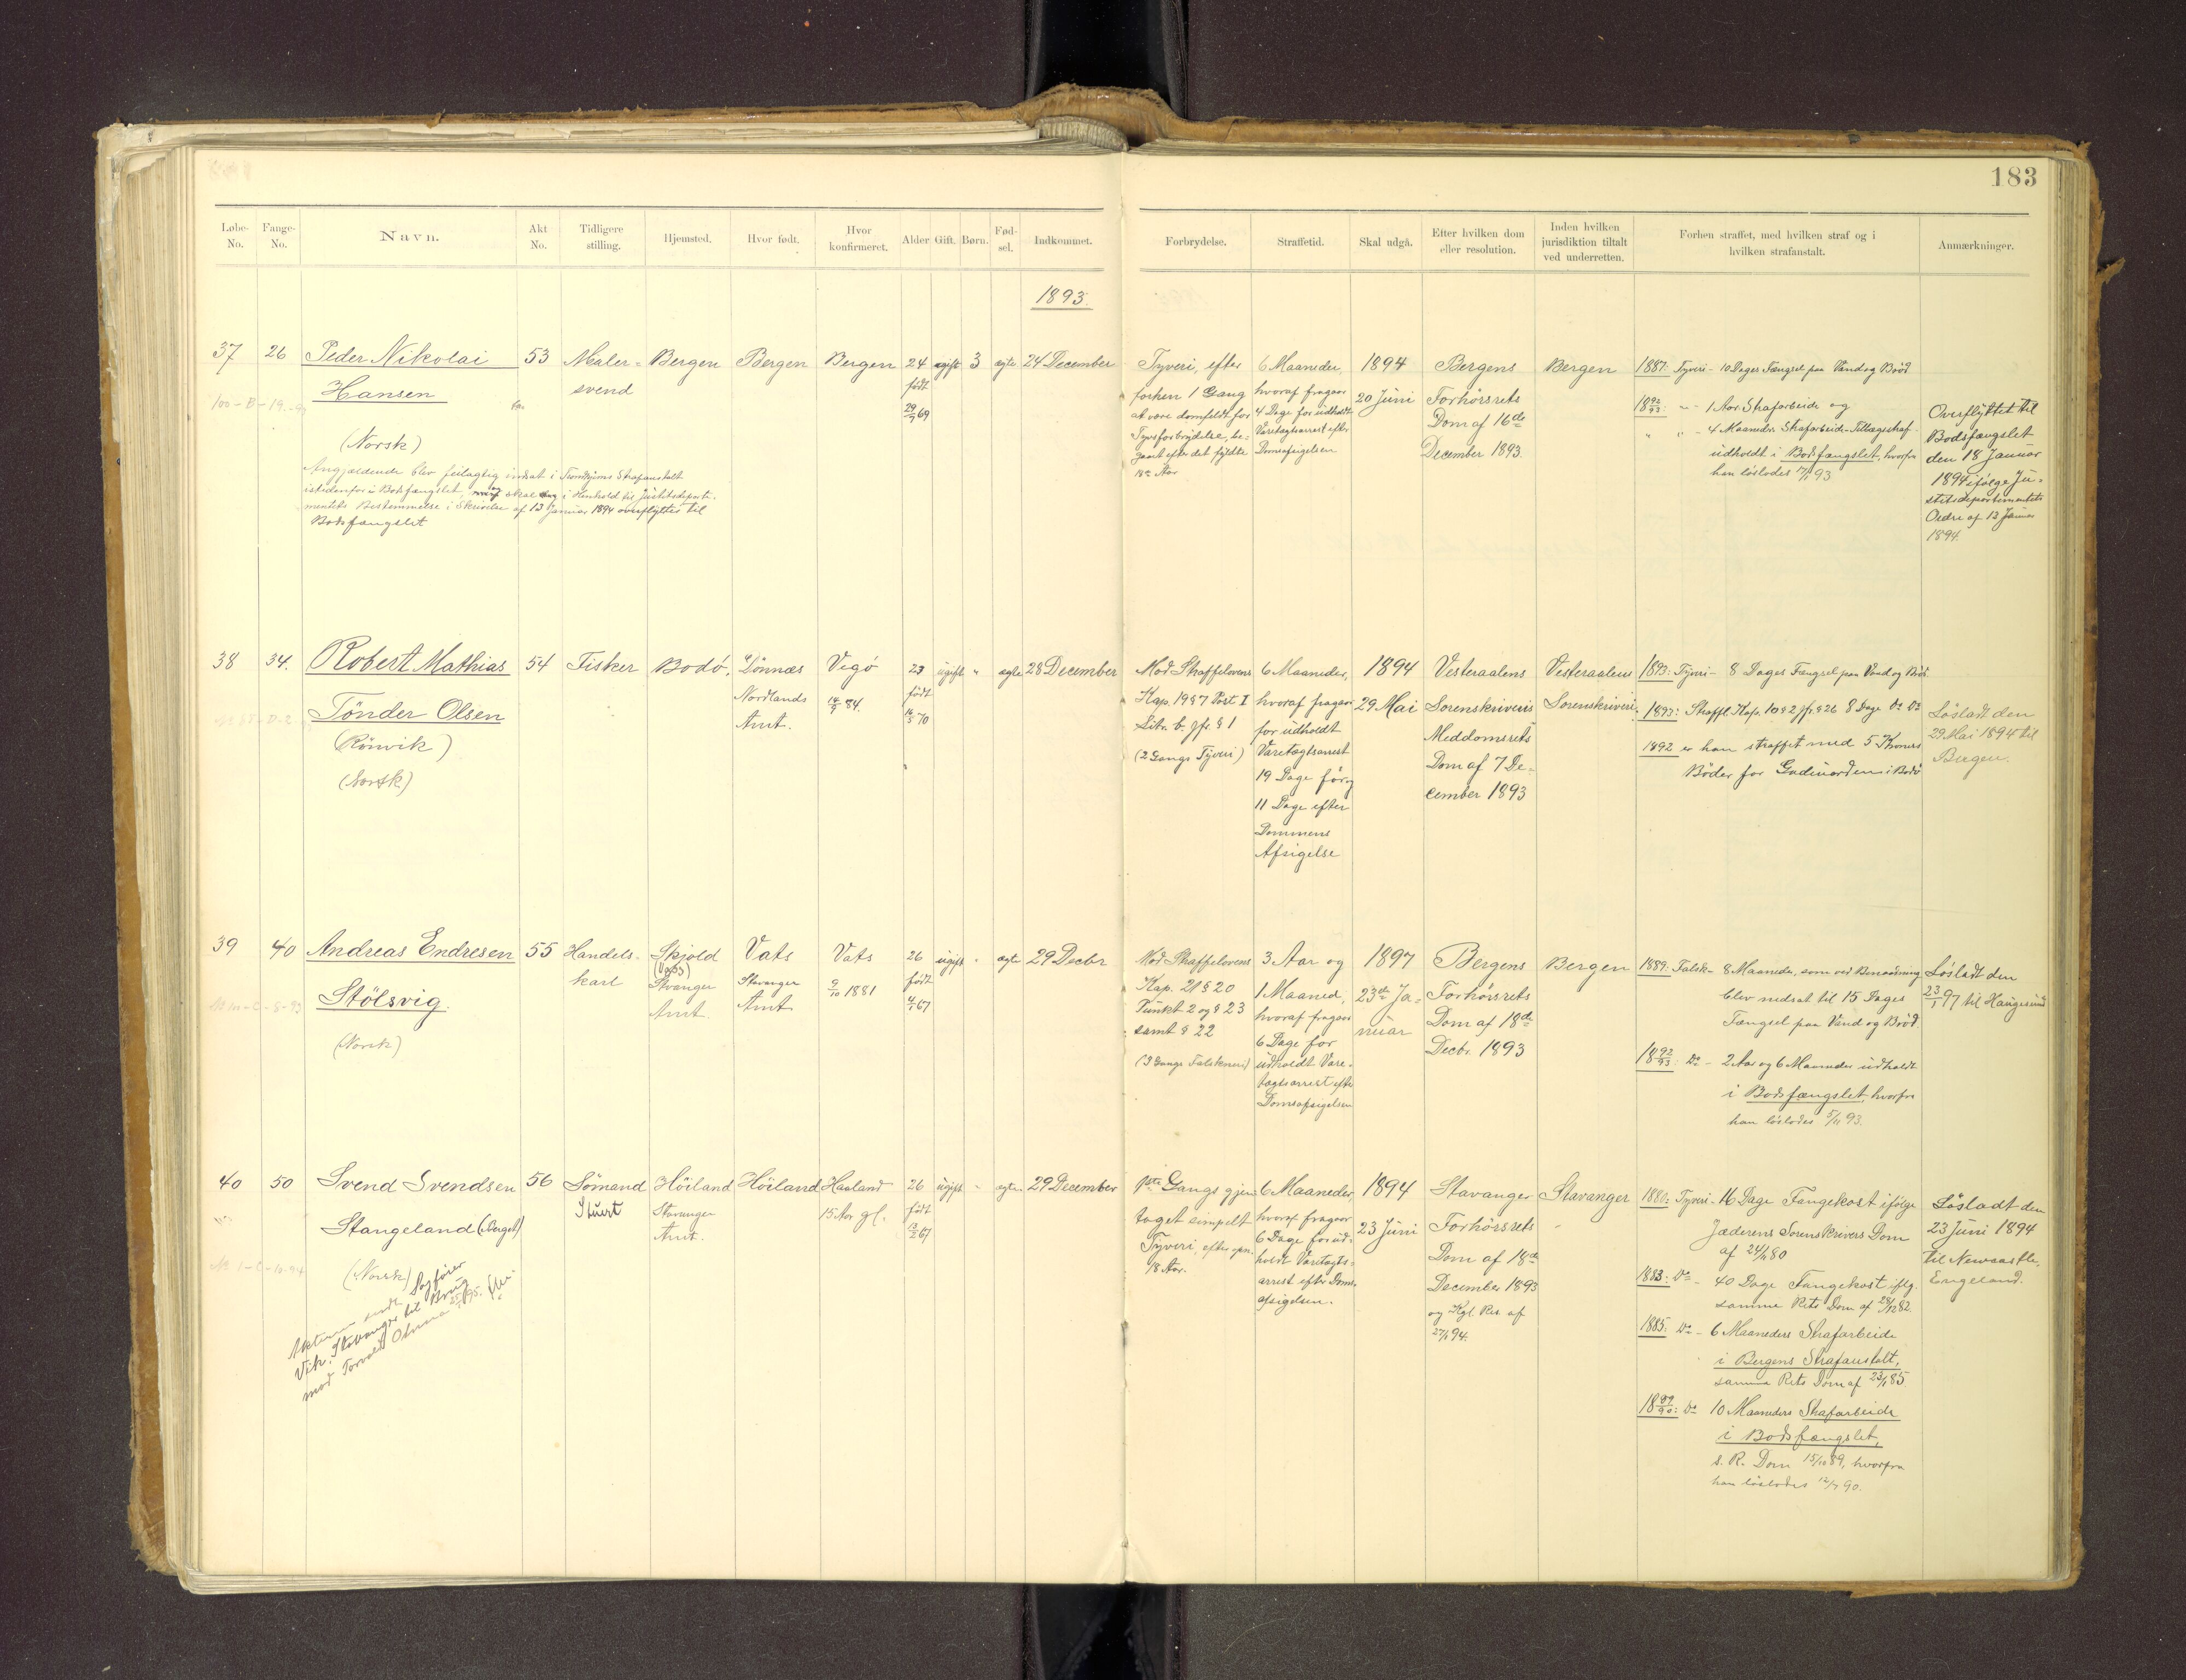 183
Løbe-No. Fange-No. Navn. Akt No. Tidligere stilling. Hjemsted. Hvor født. Hvor konfirmeret. Alder Gift. Børn. Fød-sel. Indkommet. Forbrydelse. Straffetid. Skal udgå. Efter hvilken dom eller resolution. Inden hvilken jurisdiktion tiltalt ved underretten. Forhen straffet, med hvilken straf og i hvilken strafanstalt. Anmærkninger.
1893.
37 26 Peder Nikolai
Hansen
(Norsk)
Angjældende blev feilagtig indsat i Trondhjems Strafanstalt
istedenfor i Bodsfængslet, og skal i Henhold til Justitsdeparte-
mentets Bestemmelse i Skrivelse af 13 Januar 1894 overflyttes til
Bodsfængslet
53 Maler-
svend
Bergen Bergen Bergen
24
født
29/9 69
ugift 3 ægte 24 December
Tyveri, efter
forhen 1 Gang
at være domfældt for
Tyvsforbrydelse, be-
gaaet efter det fyldte
18de Aar
6 Maaneder,
hvoraf fragaar
4 Dage for udholdt
Varetægtsarrest efter
Domsafsigelsen
1894
20 Juni
Bergens
Forhørsrets
Dom af 16de
December 1893.
Bergen
1887: Tyveri - 10 Dages Fængsel paa Vand og Brød
1892/93: " - 1 Aar Strafarbeide og
" " - 4 Maaneders Strafarbeide-Tillægsstraf
udholdt i Bodsfængslet, hvorfra
han løslodes 17/11 93
Overflyttet til
Bodsfængslet
den 18 Januar
1894 ifølge Ju-
stitsdepartementets
Ordre af 13 Januar
1894.
38 34. Robert Mathias
Tönder Olsen
(Rönvik)
(Norsk)
54 Fisker Bodö,
Dönnæs
Nordlands
Amt.
Vegö
14/9 84.
23
født
16/5 70
ugift " ægte 28 December
Mod Straffelovens
Kap. 19 § 7 Post I
Litr. b. jfr. § 1
(2 Gangs Tyveri)
6 Maaneder,
hvoraf fragaar
for udholdt
Varetægtsarrest
19 Dage før og
11 Dage efter
Dommens
Afsigelse
1894
29 Mai
Vesteraalens
Sorenskriveris
Meddomsrets
Dom af 7 De-
cember 1893
Vesteraalens
Sorenskriveri.
1893: Tyveri - 8 Dages Fængsel paa Vand og Brød
1893: Straffl. Kap. 10 § 2 jfr. § 26 8 Dage Do Do
1892 er han straffet med 5 Kroners
Bøder for Gadeuorden i Bodö
Løsladt den
29 Mai 1894 til
Bergen.
39 40 Andreas Endresen
Stölsvig.
(Norsk)
55 Handels-
karl
Skjold
(Vats)
Stvanger
Amt.
Vats
Stavanger
Amt
Vats
9/10 1881
26
født
ugift " ægte 29 Decbr
Mod Straffelovens
Kap. 21 § 20
Punkt 2 og § 23
samt § 22
(3 Gangs Falskneri)
3 Aar og
1 Maaned,
hvoraf fragaar
6 Dage for
udholdt Vare-
tægtsarrest efter
Domsafsigelsen
1897
23de Ja-
nuar
Bergens
Forhørsrets
Dom af 18de
Decbr. 1893
Bergen
1889: Falsk - 8 Maaneder, som ved Benaadning
blev nedsat til 15 Dages
Fængsel paa Vand og Brød.
1892/93: Do - 2 Aar og 6 Maaneder udholdt
i Bodsfængslet, hvorfra
han løslodes 5/11 93.
Løsladt den
23/1 97 til Haugesund
40 50 Svend Svendsen
Stangeland (Berget)
(Norsk)
Akterne sendt Sagfører
Vik, Stavanger til Brug
mod Torvald
56 Sömand
Stuert
Höiland
Stavanger
Amt.
Höiland
Haaland
15 Aar gl.
26
født
13/2 67
ugift " ægte 29 December
1ste Gangs gjen-
taget simpelt
Tyveri, efter
18 Aar.
6 Maaneder,
hvoraf fragaar
6 Dage for ud-
holdt Varetægts-
arrest efter Doms-
afsigelsen.
1894
23 Juni
Stavanger
Forhørsrets
Dom af 18de
December 1893
og Kgl. Res. af
27/1 94.
Stavanger
1880: Tyveri - 16 Dage Fangekost ifølge
Jæderens Sorenskrivers Dom
1883: Do - 40 Dage Fangekost iflg.
samme Rets Dom af 28/12 82.
1885: Do - 6 Maaneders Strafarbeide
i Bergens Strafanstalt,
samme Rets Dom af 23/1 85
1889/90: Do 10 Maaneders Strafarbeide
i Bodsfængslet,
s. R. Dom 15/10 89, hvorfra
han løslodes 12/7 90.
Løsladt den
23 Juni 1894
til Newcastle,
Engeland.